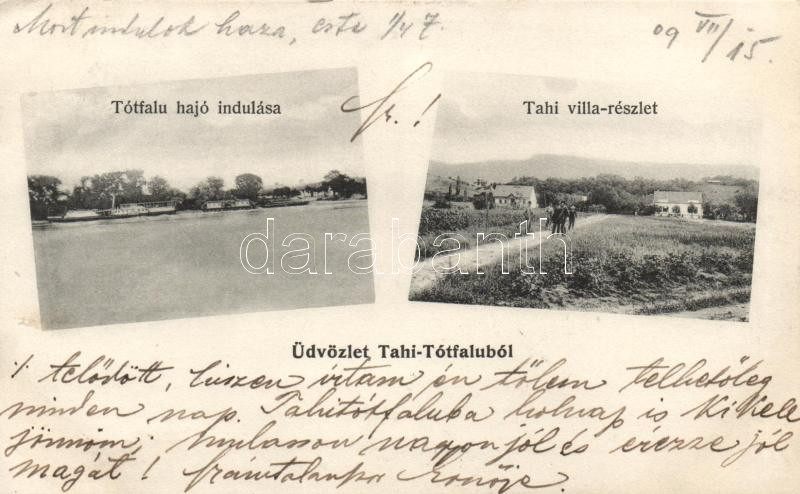 Most indulok haza, este 1/47.
09 VII/15.
Tótfalu hajó indulása
Tahi villa-részlet
darabanth
Üdvözlet Tahi-Tótfaluból
hiszen írtam én tőlem telhetőleg
minden nap. Tahitótfaluba holnap is ki kell
jönnöm; mulasson nagyon jól és érezze jól
magát!